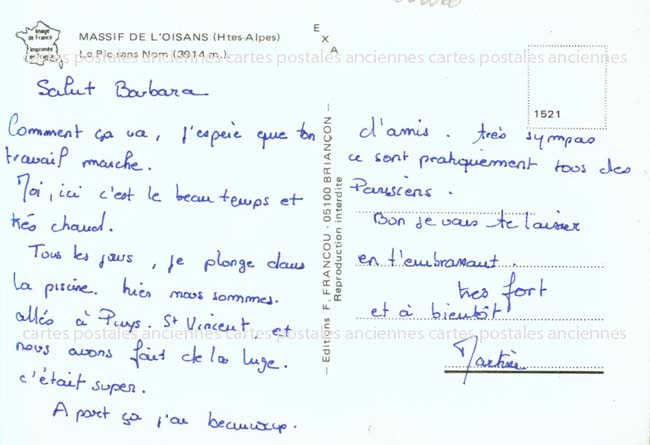 Image
de France
imprimée
en France
MASSIF DE L'OISANS (Htes-Alpes)
Le Pic sans Nom (3914 m.)
EXA
cartes postales anciennes cartes postales anciennes cartes postales anciennes
1521
Salut Barbara
Comment ça va, j'espère que ton
travail marche.
Moi, ici c'est le beau temps et
très chaud.
Tous les jours, je plonge dans
la piscine. hier nous sommes.
allés à Puys. St Vincent, et
nous avons fait de la luge.
c'était super.
A part ça j'ai beaucoup.
— Editions F. FRANCOU - 05100 BRIANÇON —
Reproduction interdite
d'amis. très sympas
ce sont pratiquement tous des
Parisiens.
Bon je vais te laisser
en t'embrassant.
très fort
et à bientôt
Martine
cartes postales anciennes cartes postales anciennes cartes postales anciennes